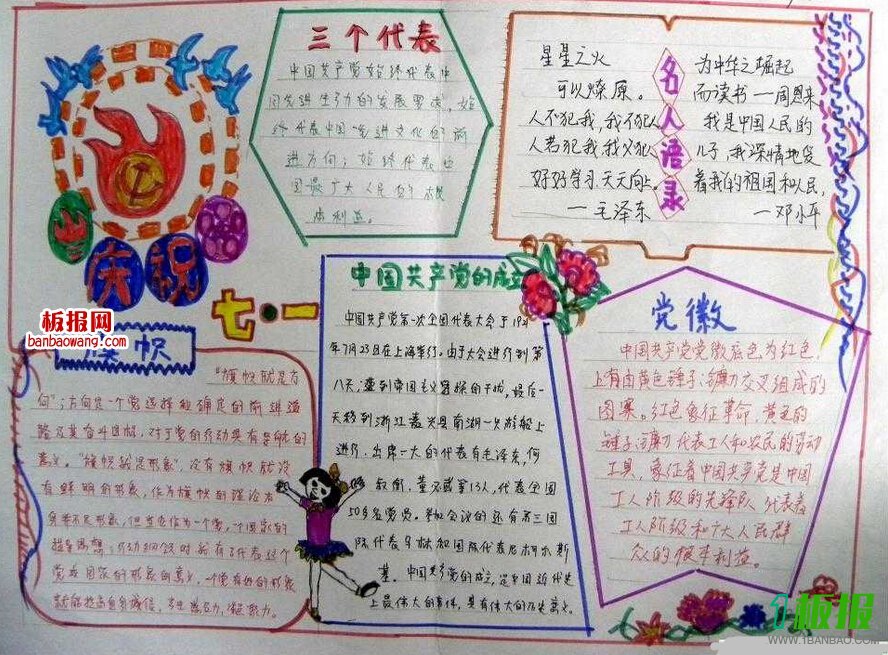 三个代表
中国共产党始终代表中
国先进生产力的发展要求,始
终代表中国先进文化的前
进方向;始终代表中
国最广大人民的根
本利益。
名人语录
星星之火
可以燎原。
人不犯我,我不犯人
人若犯我,我必犯人
好好学习,天天向上。
—毛泽东
为中华之崛起
而读书—周恩来
我是中国人民的
儿子,我深情地爱
着我的祖国和人民,
—邓小平
庆祝
七·一
板报网
banbaowang.com
旗帜
“旗帜就是方
向”;方向是一个党选择和确定的前进道
路及其奋斗目标,对于党的行动具有导航的
意义。“旗帜就是形象”,没有旗帜就没
有鲜明的形象,作为旗帜的理论本
身并不是形象,但当它作为一个党,一个国家的
指导思想、行动纲领时就有了代表这个
党或国家的形象的意义,一个党有好的形象
中国共产党的成立
中国共产党第一次全国代表大会于1921
年7月23日在上海举行。由于大会进行到第
八天,遭到帝国主义的干扰,最后一
天移到浙江嘉兴县南湖一只游船上
进行。出席一大的代表有毛泽东,何
叔衡、董必武等13人,代表全国
50多名党员。参加会议的还有第三国
际代表马林和国际代表尼柯尔斯
基。中国共产党的成立,是中国近代史
上最伟大的事件,具有伟大的历史意义。
党徽
中国共产党党徽底色为红色,
上有由黄色锤子、镰刀交叉组成的
图案。红色象征革命,黄色的
锤子、镰刀代表工人和农民的劳动
工具,象征着中国共产党是中国
工人阶级的先锋队,代表着
工人阶级和广大人民群
众的根本利益。
1板报
WWW.1BANBAO.COM